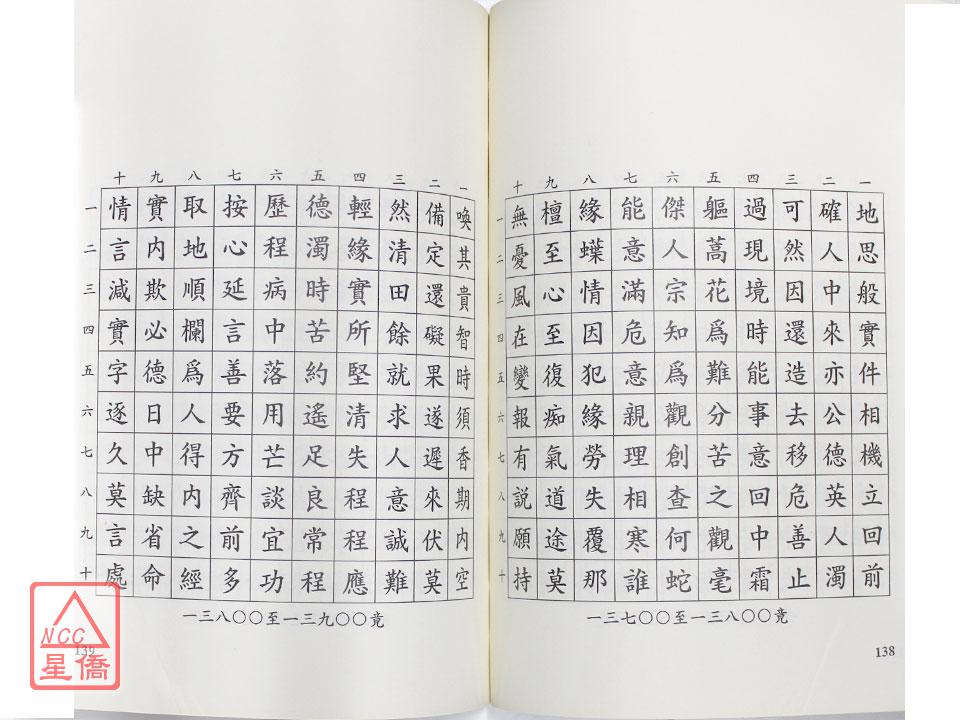 一二三四五六七八九十
地思般實件相機立回前
確人中來亦公德英人濁
可然因還造去移危善止
過現境時能事意回中霜
軀蒿花爲難分苦之觀毫
傑人宗知爲觀創查何蛇
能意滿危意親理相寒誰
緣蝶情因犯緣勞失覆那
檀至心至復痴氣道途莫
無憂風在變報有說願持
一二三四五六七八九十
一三七〇〇至一三八〇〇竟
138
一二三四五六七八九十
喚其貴智時須香期內空
備定還礙果遂遲來伏莫
然清田餘就求人意誠難
輕緣實所堅清失程程應
德濁時苦約遙足良常程
歷程病中落用芒談宜功
按心延言善要方齊前多
取地順欄爲人得內之經
實內欺必德日中缺省命
情言減實字逐久莫言處
一二三四五六七八九十
一三八〇〇至一三九〇〇竟
139
NCC
星僑